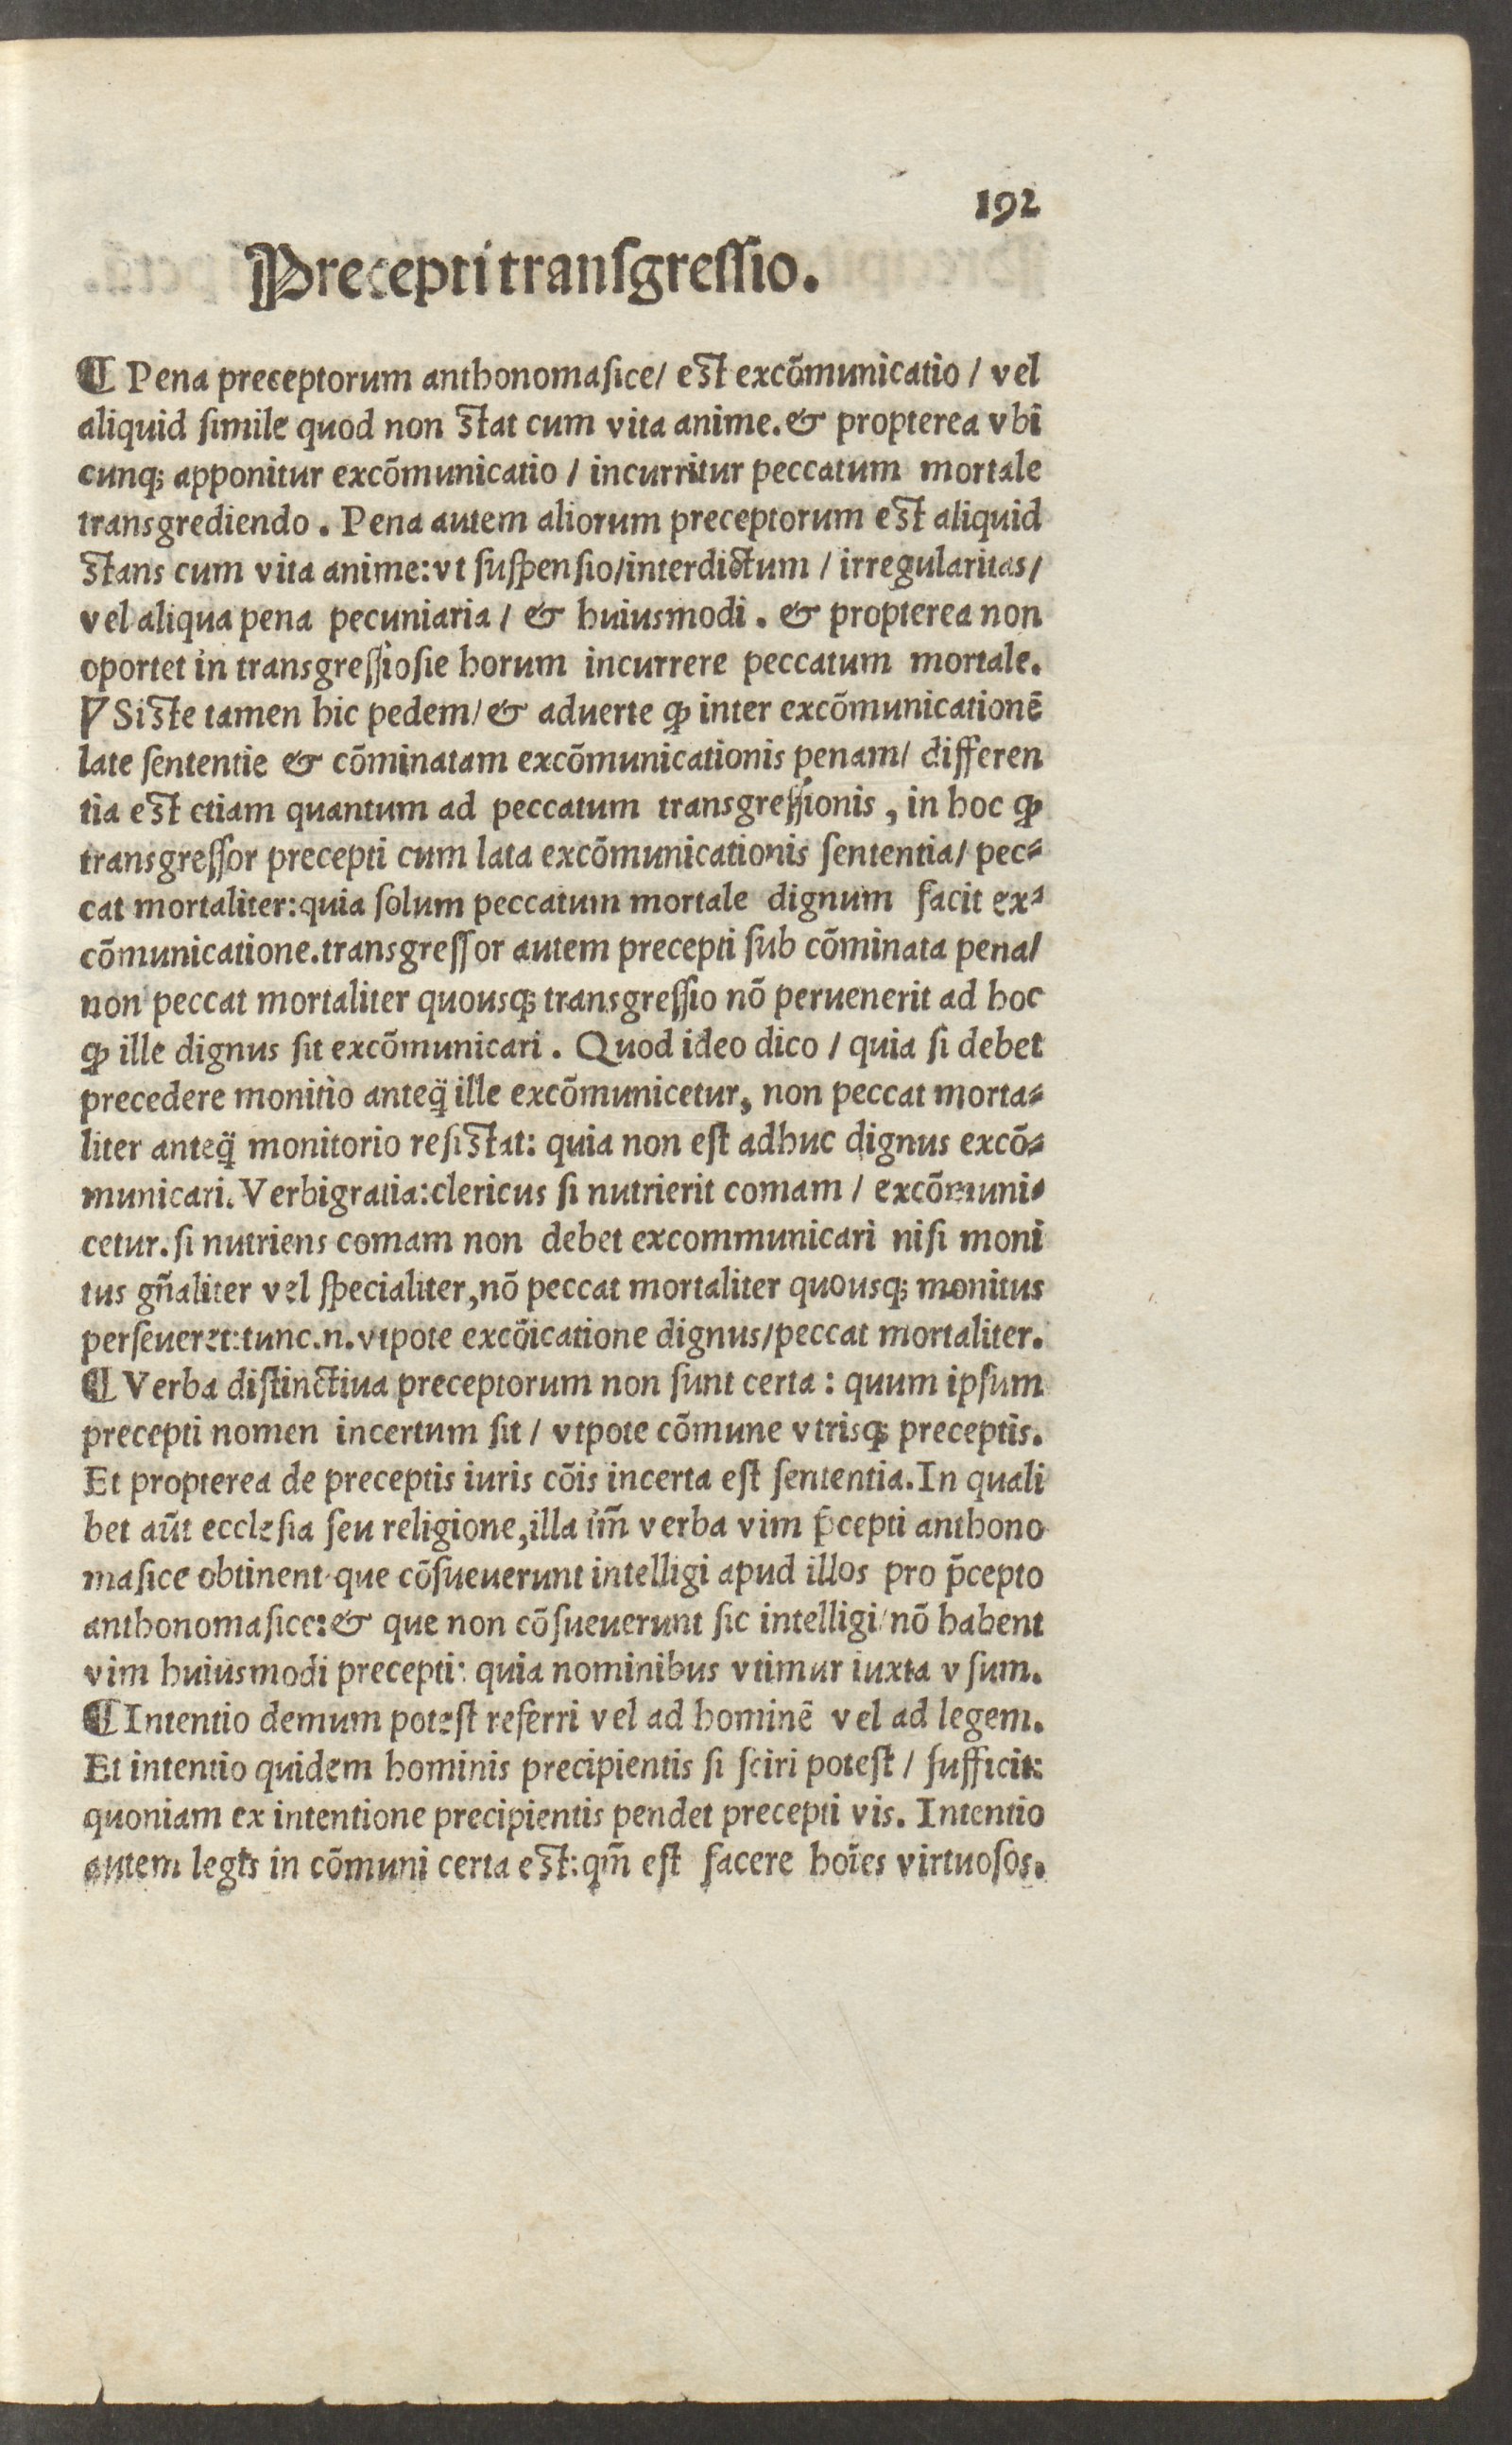 192
Precepti transgreſſio.
¶ Pena preceptorum anthonomaſice/ est excõmunicatio / vel
aliquid ſimile quod non stat cum vita anime. & propterea vbi
cunqꝫ apponitur excõmunicatio / incurritur peccatum mortale
transgrediendo. Pena autem aliorum preceptorum est aliquid
stans cum vita anime: vt ſuſpenſio/interdictum / irregularitas/
vel aliqua pena pecuniaria / & huiusmodi. & propterea non
oportet in transgreſſioſie horum incurrere peccatum mortale.
⁋ Siste tamen hic pedem/ & aduerte ꝙ inter excõmunicationẽ
late ſententie & cõminatam excõmunicationis penam/ differen
tia est etiam quantum ad peccatum transgreſſionis, in hoc ꝙ
transgreſſor precepti cum lata excõmunicationis ſententia/ pec⸗
cat mortaliter: quia ſolum peccatum mortale dignum facit ex⸗
cõmunicatione. transgreſſor autem precepti ſub cõminata pena/
non peccat mortaliter quousqꝫ transgreſſio nõ peruenerit ad hoc
ꝙ ille dignus ſit excõmunicari. Quod ideo dico / quia ſi debet
precedere monitio anteq̃ ille excõmunicetur, non peccat morta⸗
liter anteq̃ monitorio reſistat: quia non eſt adhuc dignus excõ⸗
municari. Verbigratia: clericus ſi nutrierit comam / excõmuni⸗
cetur. ſi nutriens comam non debet excommunicari niſi moni
tus gñaliter vel ſpecialiter, nõ peccat mortaliter quousqꝫ monitus
perſeueret: tunc.n. vtpote excõicatione dignus/peccat mortaliter.
¶ Verba diſtinctiua preceptorum non ſunt certa: quum ipſum
precepti nomen incertum ſit / vtpote cõmune vtrisqꝫ preceptis.
Et propterea de preceptis iuris cõis incerta eſt ſententia. In quali
bet aũt eccleſia ſeu religione, illa tm̃ verba vim p̃cepti anthono
maſice obtinent que cõſueuerunt intelligi apud illos pro p̃cepto
anthonomaſice: & que non cõſueuerunt ſic intelligi/ nõ habent
vim huiusmodi precepti: quia nominibus vtimur iuxta vſum.
¶ Intentio demum poteſt referri vel ad hominẽ vel ad legem.
Et intentio quidem hominis precipientis ſi ſciri poteſt / ſufficit:
quoniam ex intentione precipientis pendet precepti vis. Intentio
autem legis in cõmuni certa est: qm̃ eſt facere hoĩes virtuoſos.